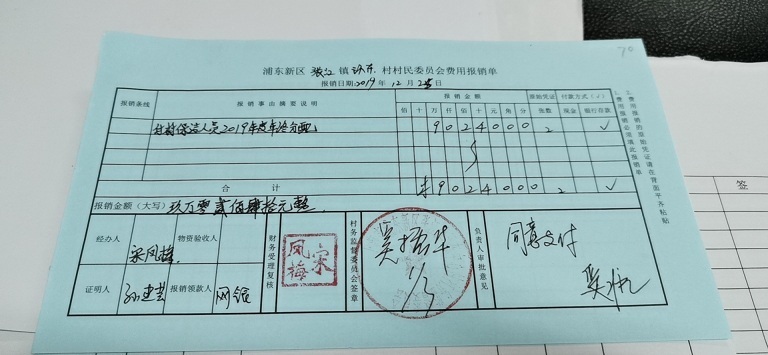 浦东新区 张江 镇 环东 村村民委员会费用报销单
报销日期2019年12月25日
报销条线 报销事由摘要说明 报销金额 原始凭证 付款方式(√)
佰 十 万 仟 佰 十 元 角 分 张数 现金 银行存款
村保洁人员2019年度年终分配 9 0 2 4 0 0 0 2 √
合计 ¥ 9 0 2 4 0 0 0 2 √
报销金额(大写) 玖万零贰佰肆拾元整
经办人 宋凤梅 物资验收人
证明人 报销领款人 网银
财务受理复核
宋凤梅
村务监督委员会签章
负责人审批意见
同意支付
1.费用报销必须填此报销单
2.费用报销的原始凭证请在背面平齐粘贴
签